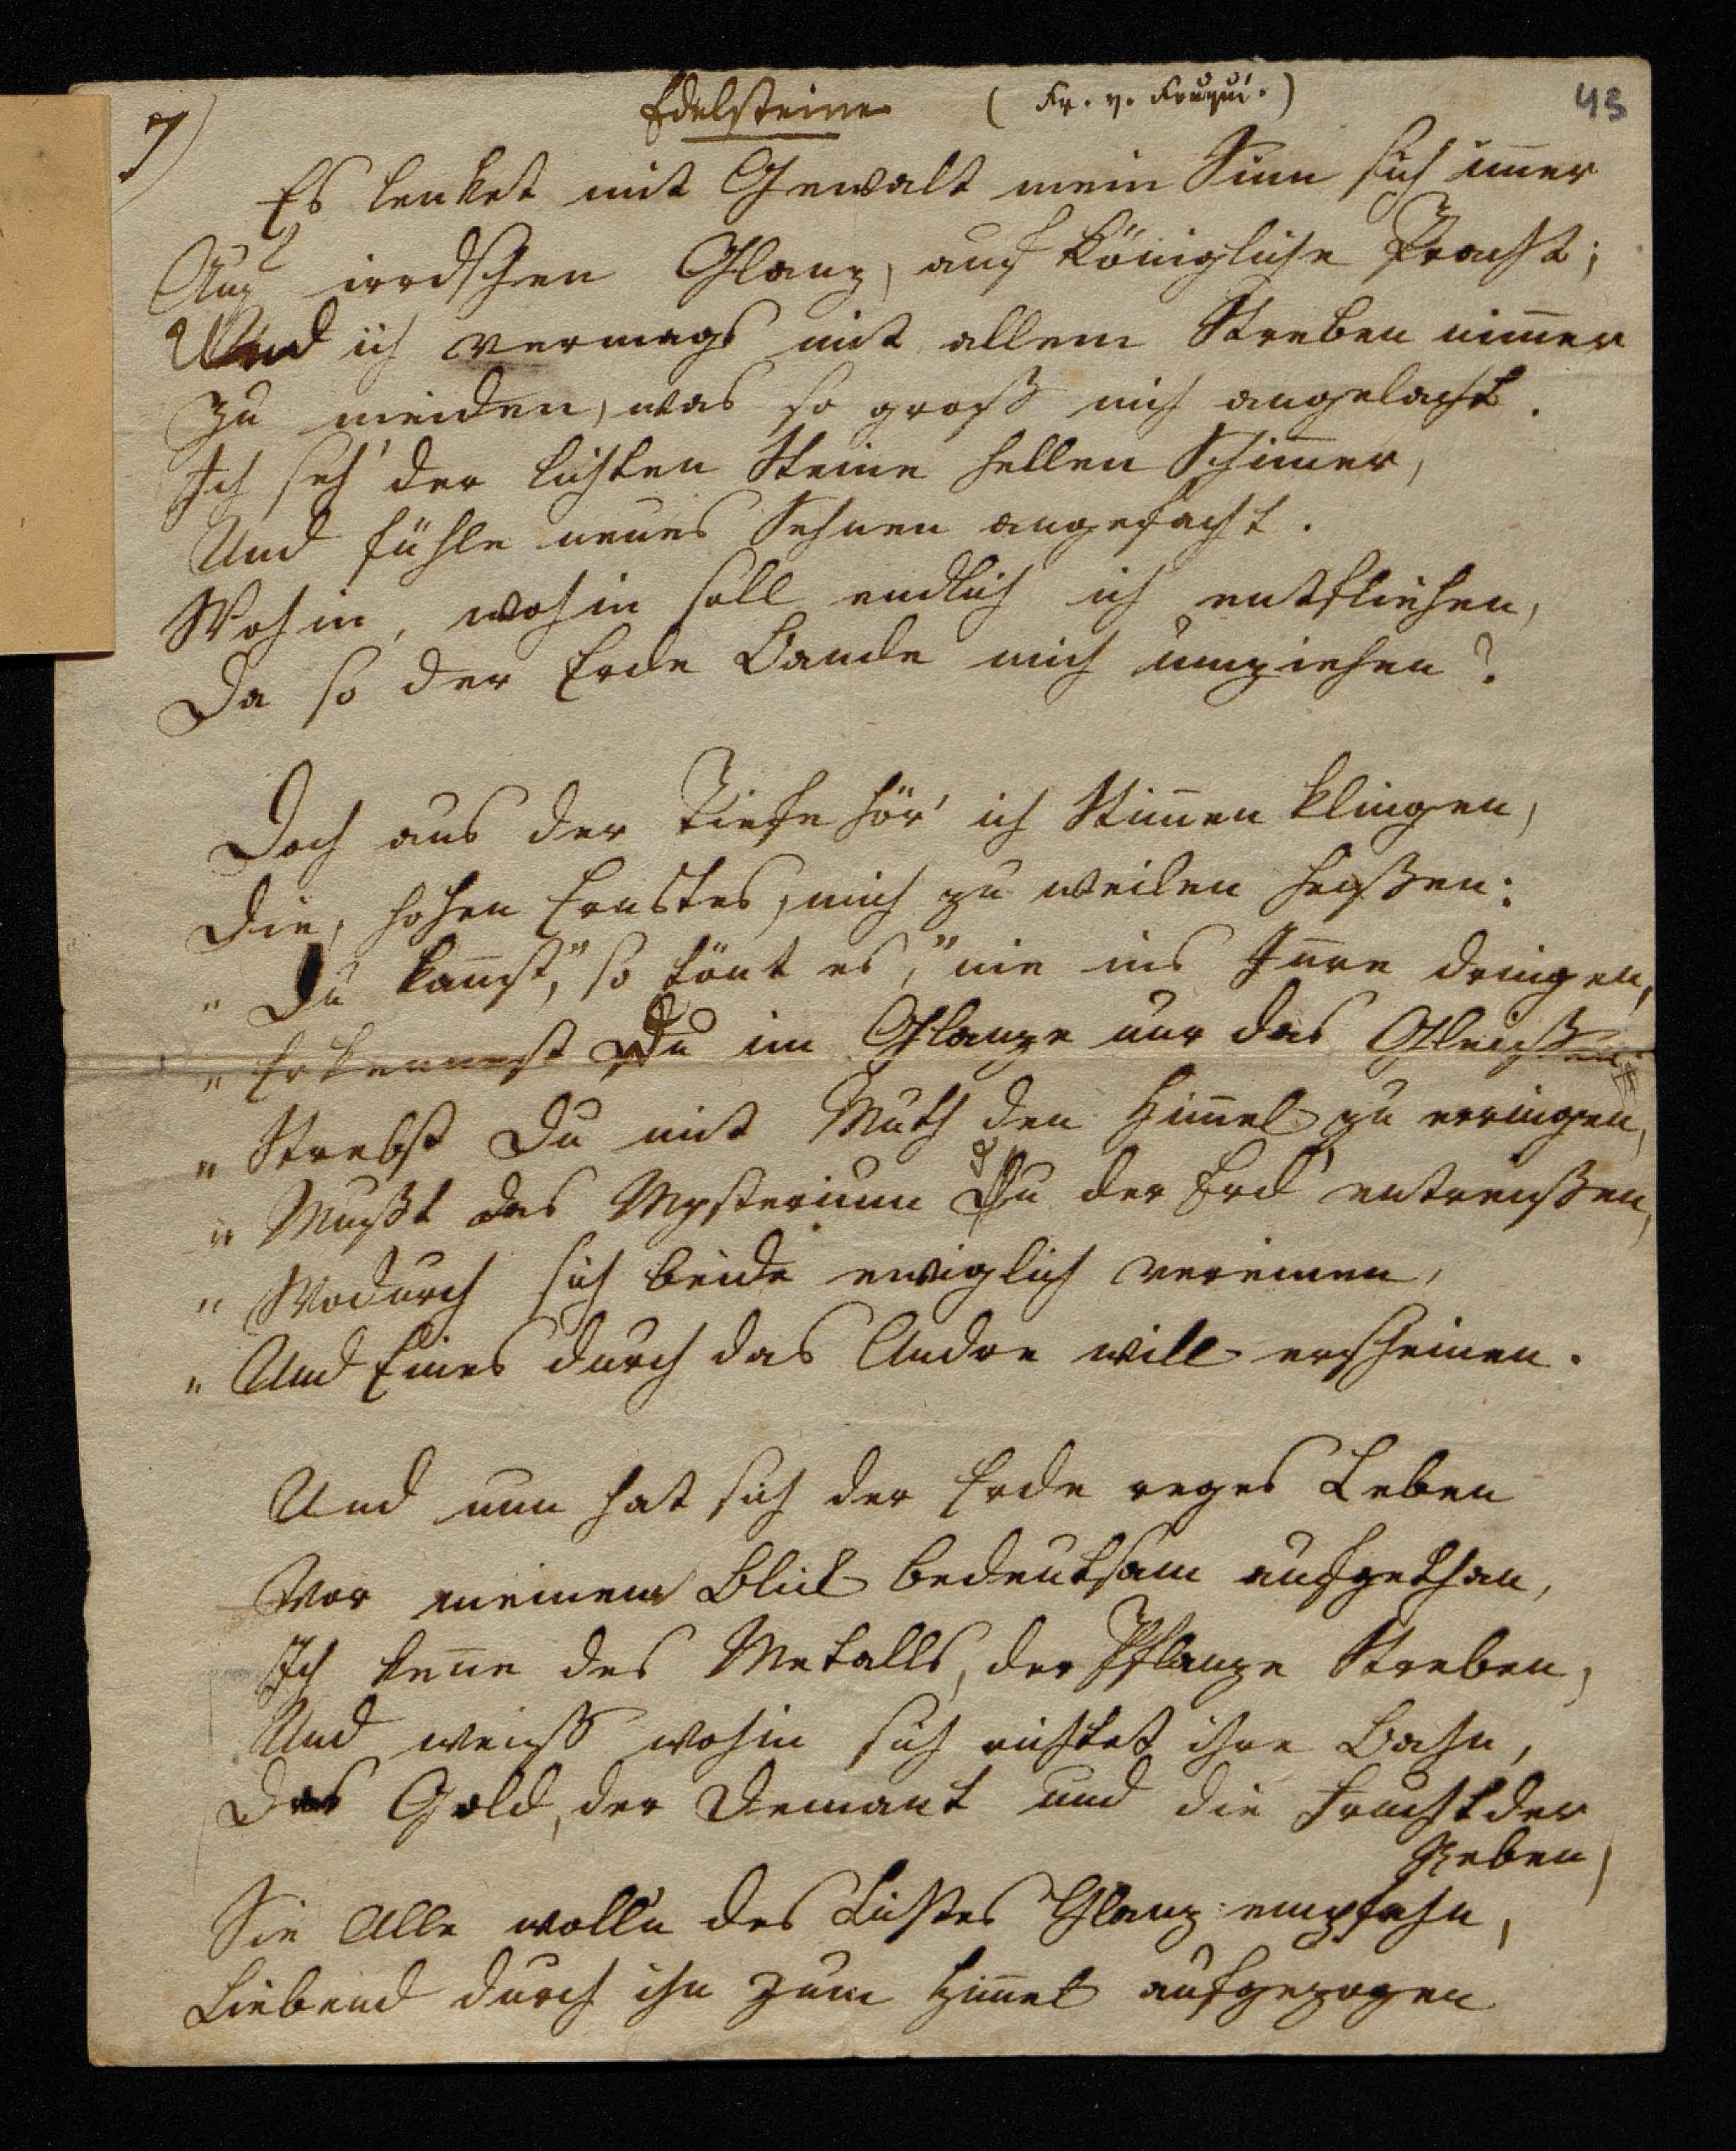 7)
Edelsteine (Fr. v. Fouqué.)
43
Es lenket mit Gewalt mein Sinn sich im̅er
Auf irrdschen Glanz, auf königliche Pracht;
Und ich vermags mit allem Streben nim̅er
Zu meiden, was so groß mich angelacht.
Ich seh' der lichten Steine hellen Schim̅er,
Und fühle neues Sehnen angefacht.
Wohin, wohin soll endlich ich entfliehen,
Da so der Erde Bande mich umziehen?
Doch aus der Tiefe hör' ich Stim̅en klingen,
Die, hohen Ernstes, mich zu weilen heißen:
„Du kan̅st," so tönt es, „nie ins In̅re dringen,
„Erkennest Du im Glanze nur das Gleißen;
„Strebst Du mit Muth den Him̅el zu erringen,
„Mußt das Mysterium Du der Erd' entreißen,
„Wodurch sich beide ewiglich vereinen,
„Und Eines durch das Andre will erscheinen.
Und nun hat sich der Erde reges Leben
Vor meinem Blick bedeutsam aufgethan,
Ich ken̅e des Metalls, der Pflanze Streben,
Und weiß wohin sich richtet ihre Bahn,
Das Gold, der Demant und die Frucht der
Reben,
Sie Alle woll'n des Lichtes Glanz empfahn,
Liebend durch ihn zum Him̅el aufgezogen